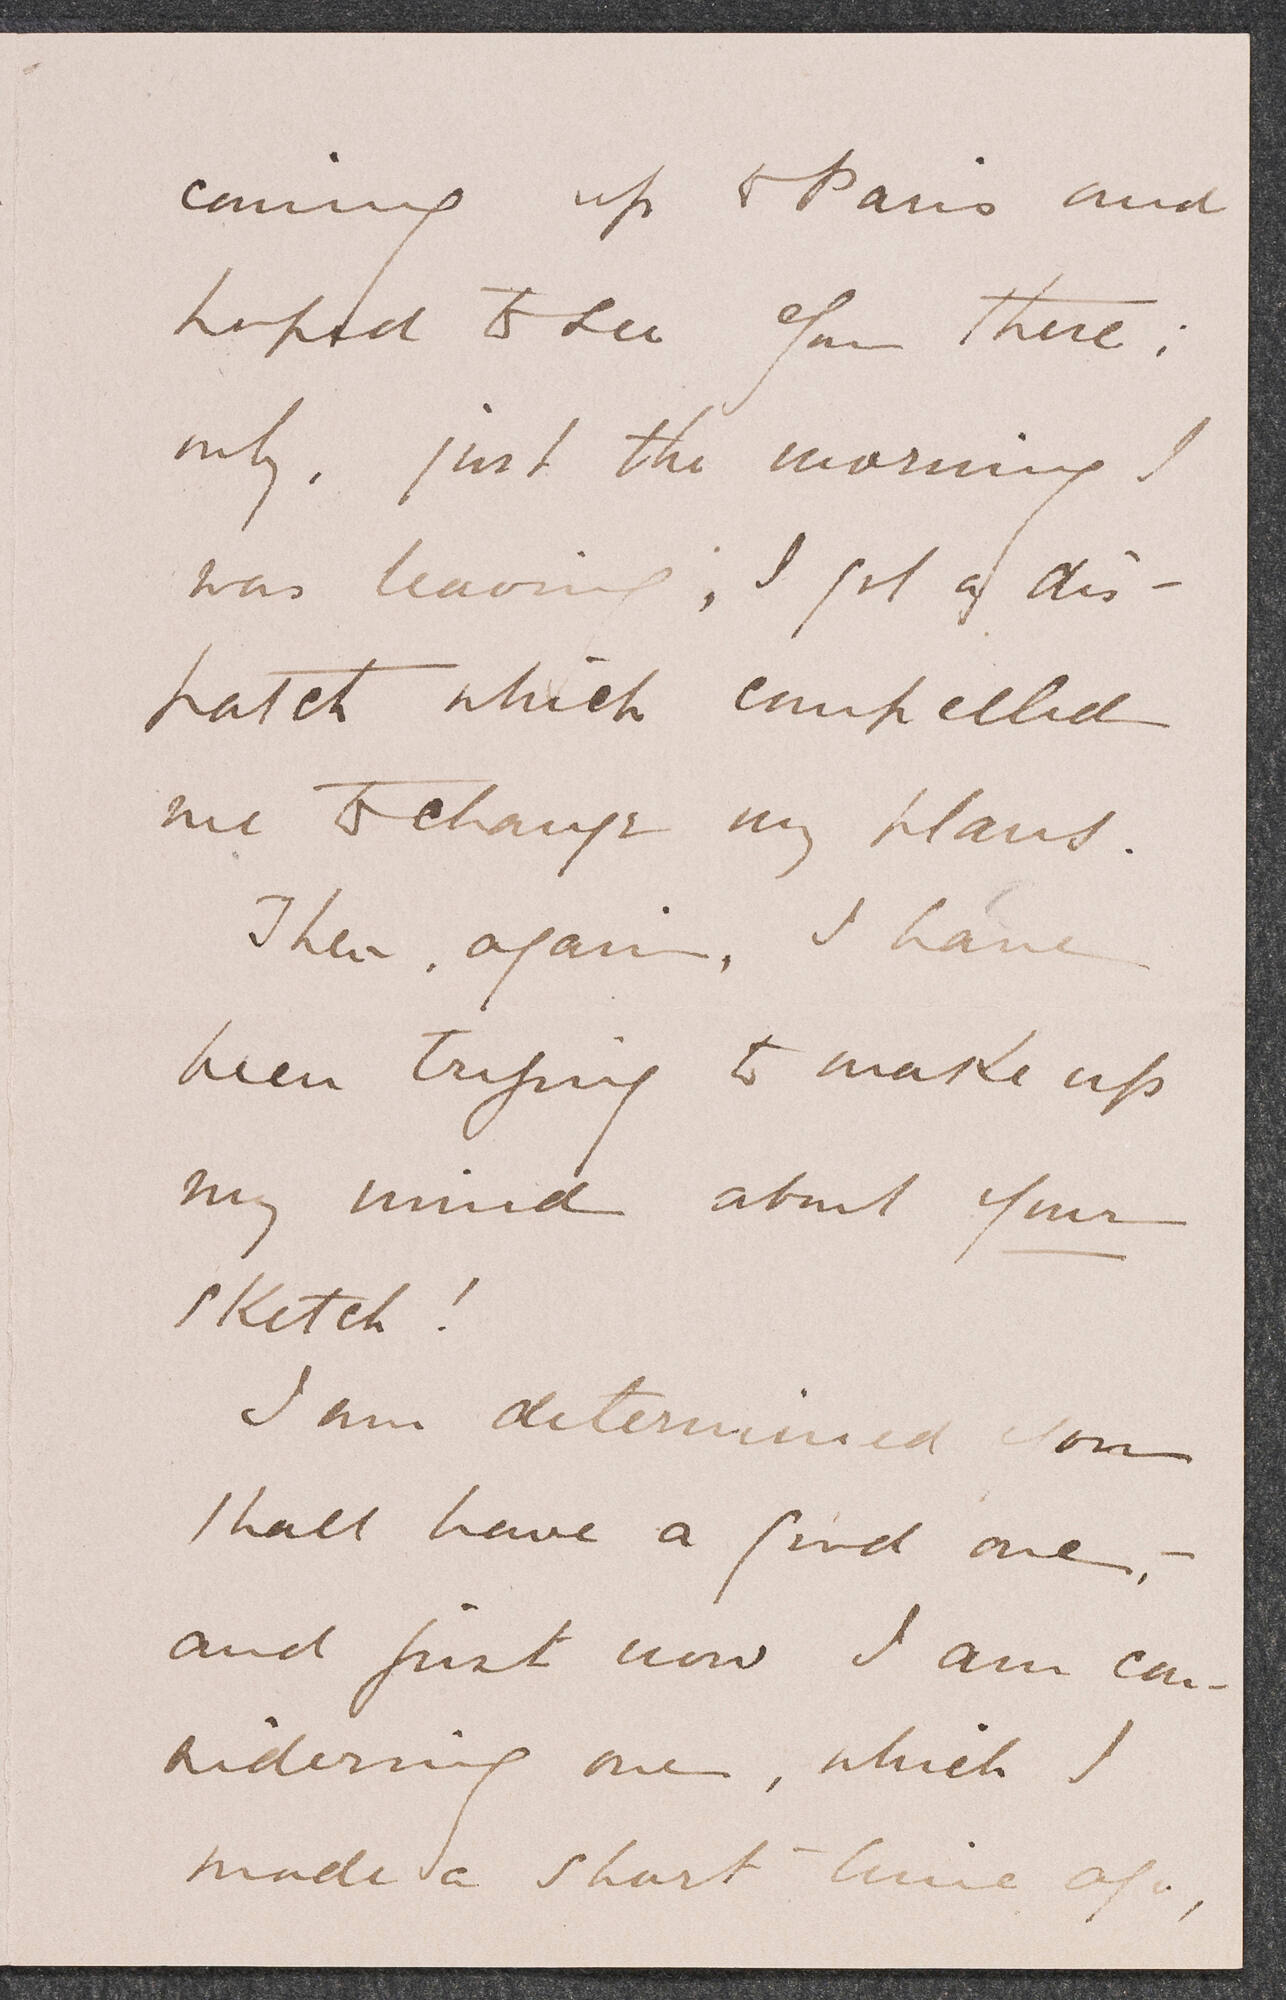 coming up to Paris and
hoped to see you there;
only, just the morning I
was leaving, I got a dis-
patch which compelled
me to change my plans.
Then, again, I have
been trying to make up
my mind about your
sketch!
I am determined you
shall have a good one,-
and just now I am con-
sidering one, which I
made a short time ago,